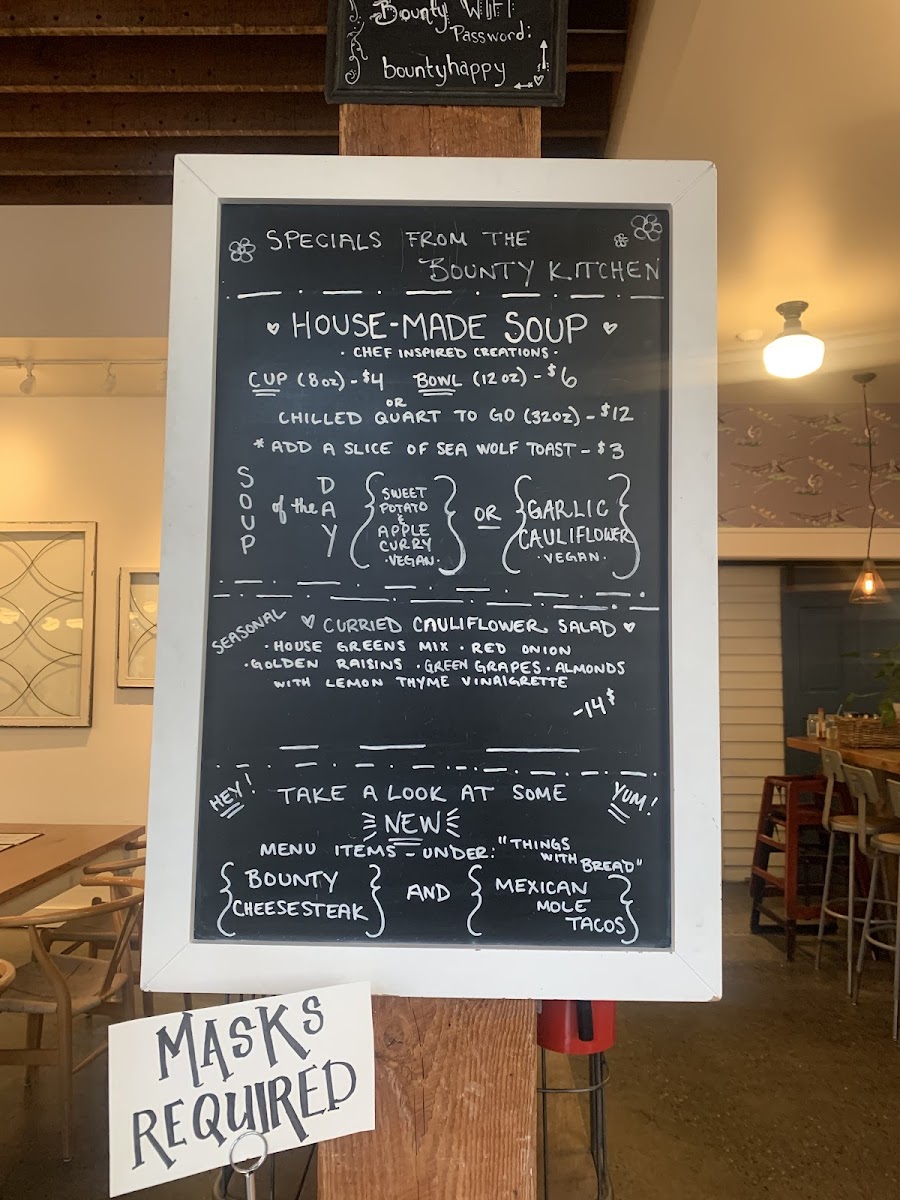 Bounty WiFi
Password:
bountyhappy
SPECIALS FROM THE
BOUNTY KITCHEN
HOUSE-MADE SOUP
· CHEF INSPIRED CREATIONS ·
CUP (8oz) - $4 BOWL (12oz) - $6
OR
CHILLED QUART TO GO (32oz) - $12
* ADD A SLICE OF SEA WOLF TOAST - $3
SOUP of the DAY
{SWEET
POTATO
&
APPLE
CURRY
· VEGAN ·}
OR
{GARLIC
CAULIFLOWER
· VEGAN ·}
SEASONAL
♡ CURRIED CAULIFLOWER SALAD ♥
· HOUSE GREENS MIX · RED ONION
· GOLDEN RAISINS · GREEN GRAPES · ALMONDS
WITH LEMON THYME VINAIGRETTE
-14$
HEY! TAKE A LOOK AT SOME YUM!
NEW
MENU ITEMS - UNDER: "THINGS
WITH
BREAD"
{BOUNTY
CHEESESTEAK}
AND
{MEXICAN
MOLE
TACOS}
MASKS
REQUIRED